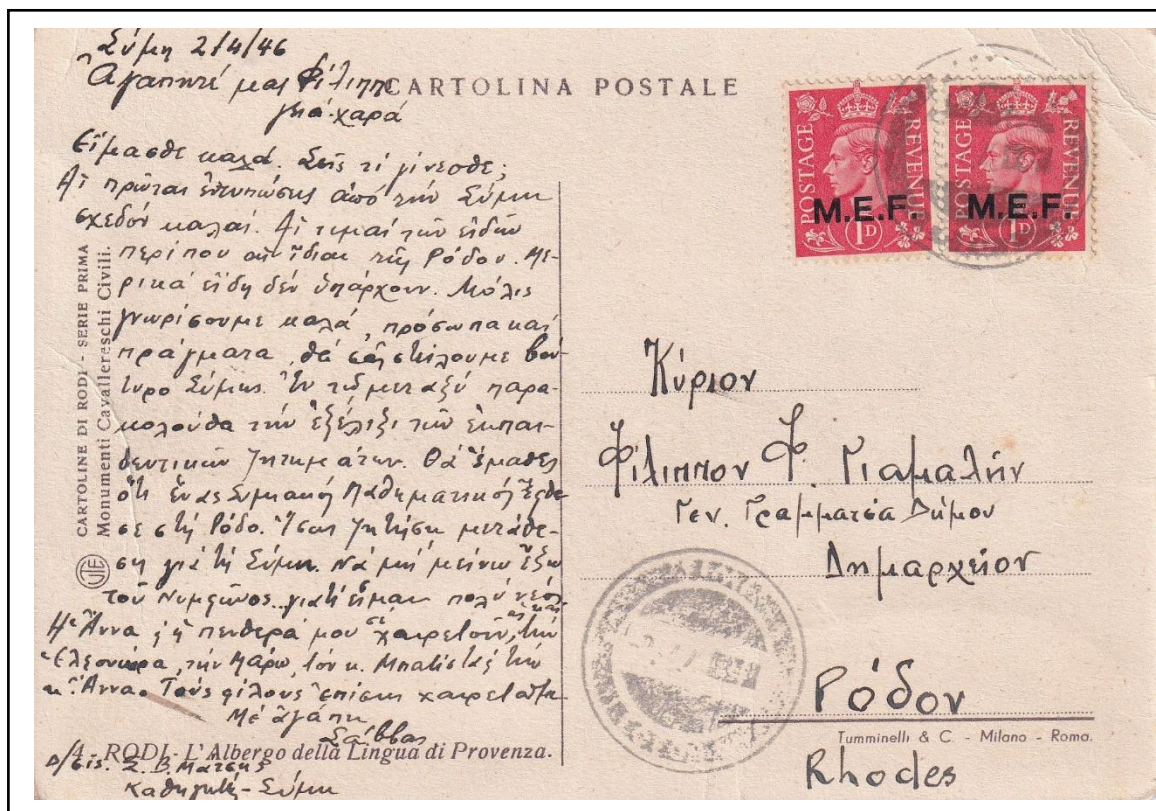 Σύμη 2/4/46
Ἀγαπητέ μας Φίλιππε
γειά-χαρά
Εἴμασθε καλά. Σεῖς τί γίνεσθε;
Αἱ πρῶται ἐντυπώσεις ἀπό τήν Σύμη
σχεδόν καλαί. Αἱ τιμαί τῶν εἰδῶν
περίπου αἱ ἴδιαι τῆς Ρόδου. Με-
ρικά εἴδη δέν ὑπάρχουν. Μόλις
γνωρίσουμε καλά, πρόσωπα καί
πράγματα, θά σᾶς στείλουμε βού-
τυρο Σύμης. Ἐν τῷ μεταξύ παρα-
κολούθα τήν ἐξέλιξι τῶν ἐκπαι-
δευτικῶν ζητημάτων. Θά ἔμαθες
ὅτι ἕνας Συμιακός Μαθηματικός
σε στή Ρόδο. Ἴσως ζητήση μετάθε-
ση γιά τή Σύμη. Νά μή μείνω ἔξω
τοῦ Νυμφῶνος.. γιατί εἶμαι πολύ νέος.
Ἡ Ἄννα, ἡ πενθερά μου σέ χαιρετοῦν, ὡς καί τήν
Ἐλεονώρα, τήν Μάρω, τόν κ. Μπατίστα, τήν
κ. Ἄννα. Τούς φίλους ἐπίσης
Μέ ἀγάπη
Σάββας
Δ/σις. Σ. Β.
Καθηγητής - Σύμη
CARTOLINA POSTALE
CARTOLINE DI RODI - SERIE PRIMA
Monumenti Cavallereschi Civili.
4 - RODI - L'Albergo della Lingua di Provenza.
POSTAGE REVENUE
M.E.F.
1D
POSTAGE REVENUE
M.E.F.
1D
Κύριον
Φίλιππον Φ. Γιαμαλήν
Γεν. Γραμματέα Δήμου
Δημαρχεῖον
Ρόδον
Tumminelli & C. - Milano - Roma.
Rhodes